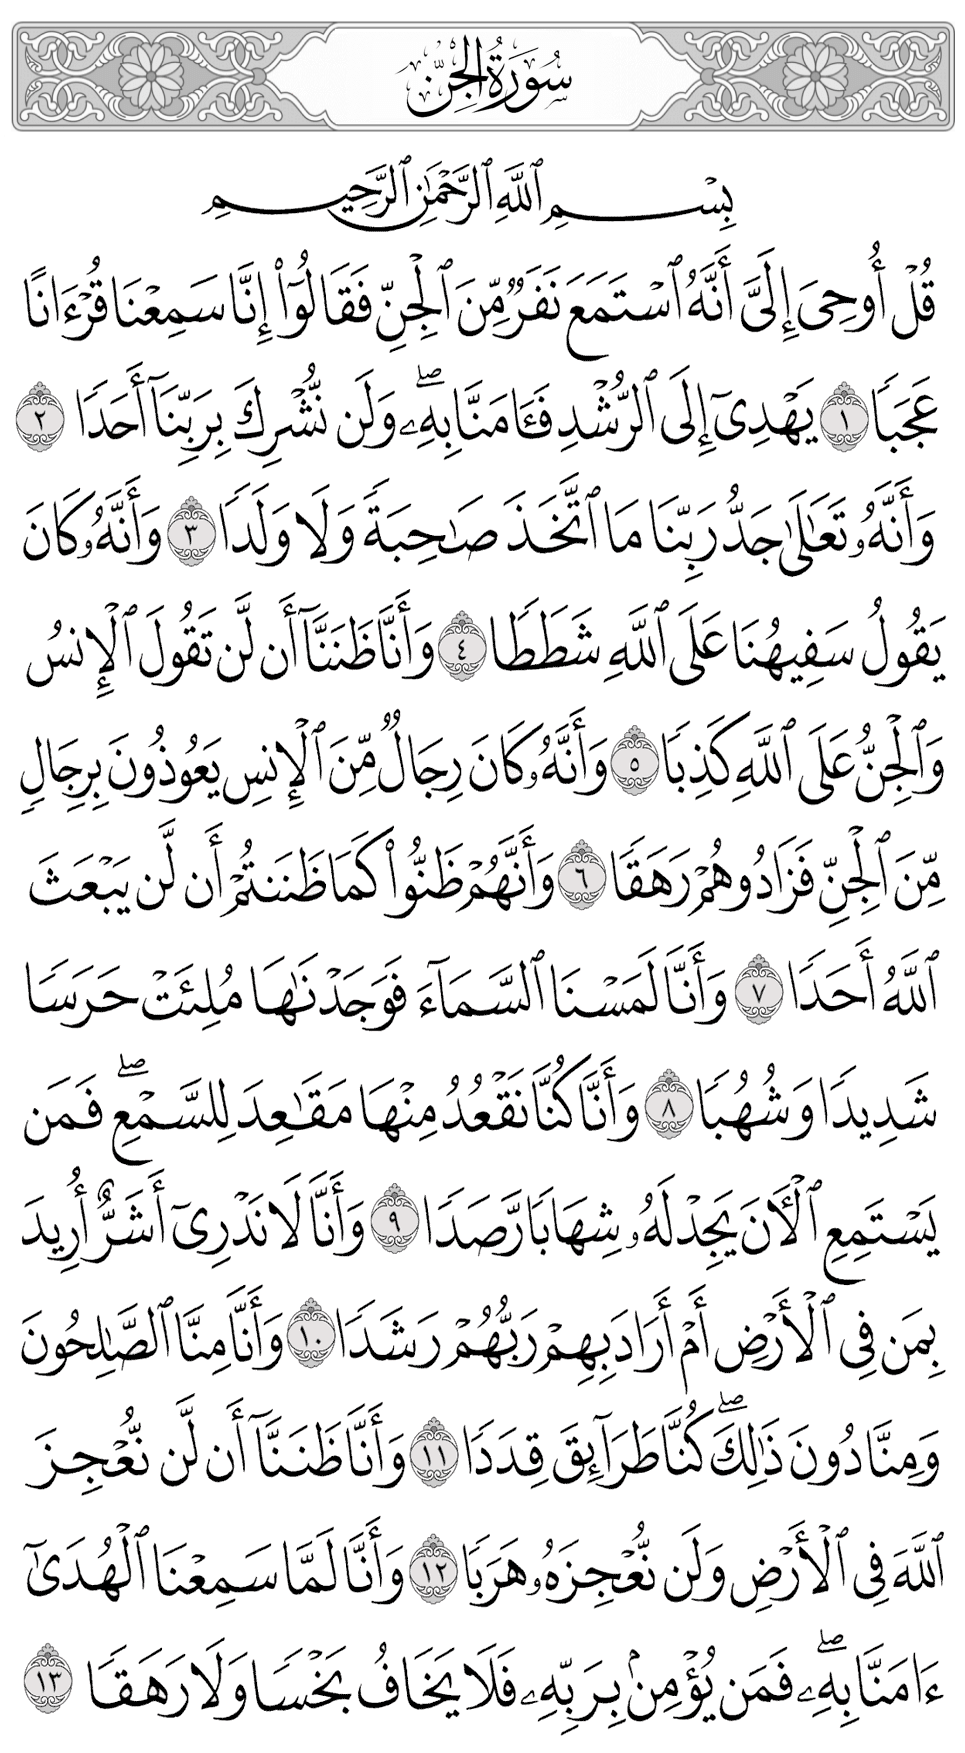 سُورَةُ الجِنّ
بِسْمِ ٱللَّهِ ٱلرَّحْمَٰنِ ٱلرَّحِيمِ
قُلْ أُوحِىَ إِلَىَّ أَنَّهُ ٱسْتَمَعَ نَفَرٌ مِّنَ ٱلْجِنِّ فَقَالُوٓا۟ إِنَّا سَمِعْنَا قُرْءَانًا
عَجَبًا ١ يَهْدِىٓ إِلَى ٱلرُّشْدِ فَـَٔامَنَّا بِهِۦ ۖ وَلَن نُّشْرِكَ بِرَبِّنَآ أَحَدًا ٢
وَأَنَّهُۥ تَعَٰلَىٰ جَدُّ رَبِّنَا مَا ٱتَّخَذَ صَٰحِبَةً وَلَا وَلَدًا ٣ وَأَنَّهُۥ كَانَ
يَقُولُ سَفِيهُنَا عَلَى ٱللَّهِ شَطَطًا ٤ وَأَنَّا ظَنَنَّآ أَن لَّن تَقُولَ ٱلْإِنسُ
وَٱلْجِنُّ عَلَى ٱللَّهِ كَذِبًا ٥ وَأَنَّهُۥ كَانَ رِجَالٌ مِّنَ ٱلْإِنسِ يَعُوذُونَ بِرِجَالٍ
مِّنَ ٱلْجِنِّ فَزَادُوهُمْ رَهَقًا ٦ وَأَنَّهُمْ ظَنُّوا۟ كَمَا ظَنَنتُمْ أَن لَّن يَبْعَثَ
ٱللَّهُ أَحَدًا ٧ وَأَنَّا لَمَسْنَا ٱلسَّمَآءَ فَوَجَدْنَٰهَا مُلِئَتْ حَرَسًا
شَدِيدًا وَشُهُبًا ٨ وَأَنَّا كُنَّا نَقْعُدُ مِنْهَا مَقَٰعِدَ لِلسَّمْعِ ۖ فَمَن
يَسْتَمِعِ ٱلْـَٔانَ يَجِدْ لَهُۥ شِهَابًا رَّصَدًا ٩ وَأَنَّا لَا نَدْرِىٓ أَشَرٌّ أُرِيدَ
بِمَن فِى ٱلْأَرْضِ أَمْ أَرَادَ بِهِمْ رَبُّهُمْ رَشَدًا ١٠ وَأَنَّا مِنَّا ٱلصَّٰلِحُونَ
وَمِنَّا دُونَ ذَٰلِكَ ۖ كُنَّا طَرَآئِقَ قِدَدًا ١١ وَأَنَّا ظَنَنَّآ أَن لَّن نُّعْجِزَ
ٱللَّهَ فِى ٱلْأَرْضِ وَلَن نُّعْجِزَهُۥ هَرَبًا ١٢ وَأَنَّا لَمَّا سَمِعْنَا ٱلْهُدَىٰٓ
ءَامَنَّا بِهِۦ ۖ فَمَن يُؤْمِنۢ بِرَبِّهِۦ فَلَا يَخَافُ بَخْسًا وَلَا رَهَقًا ١٣